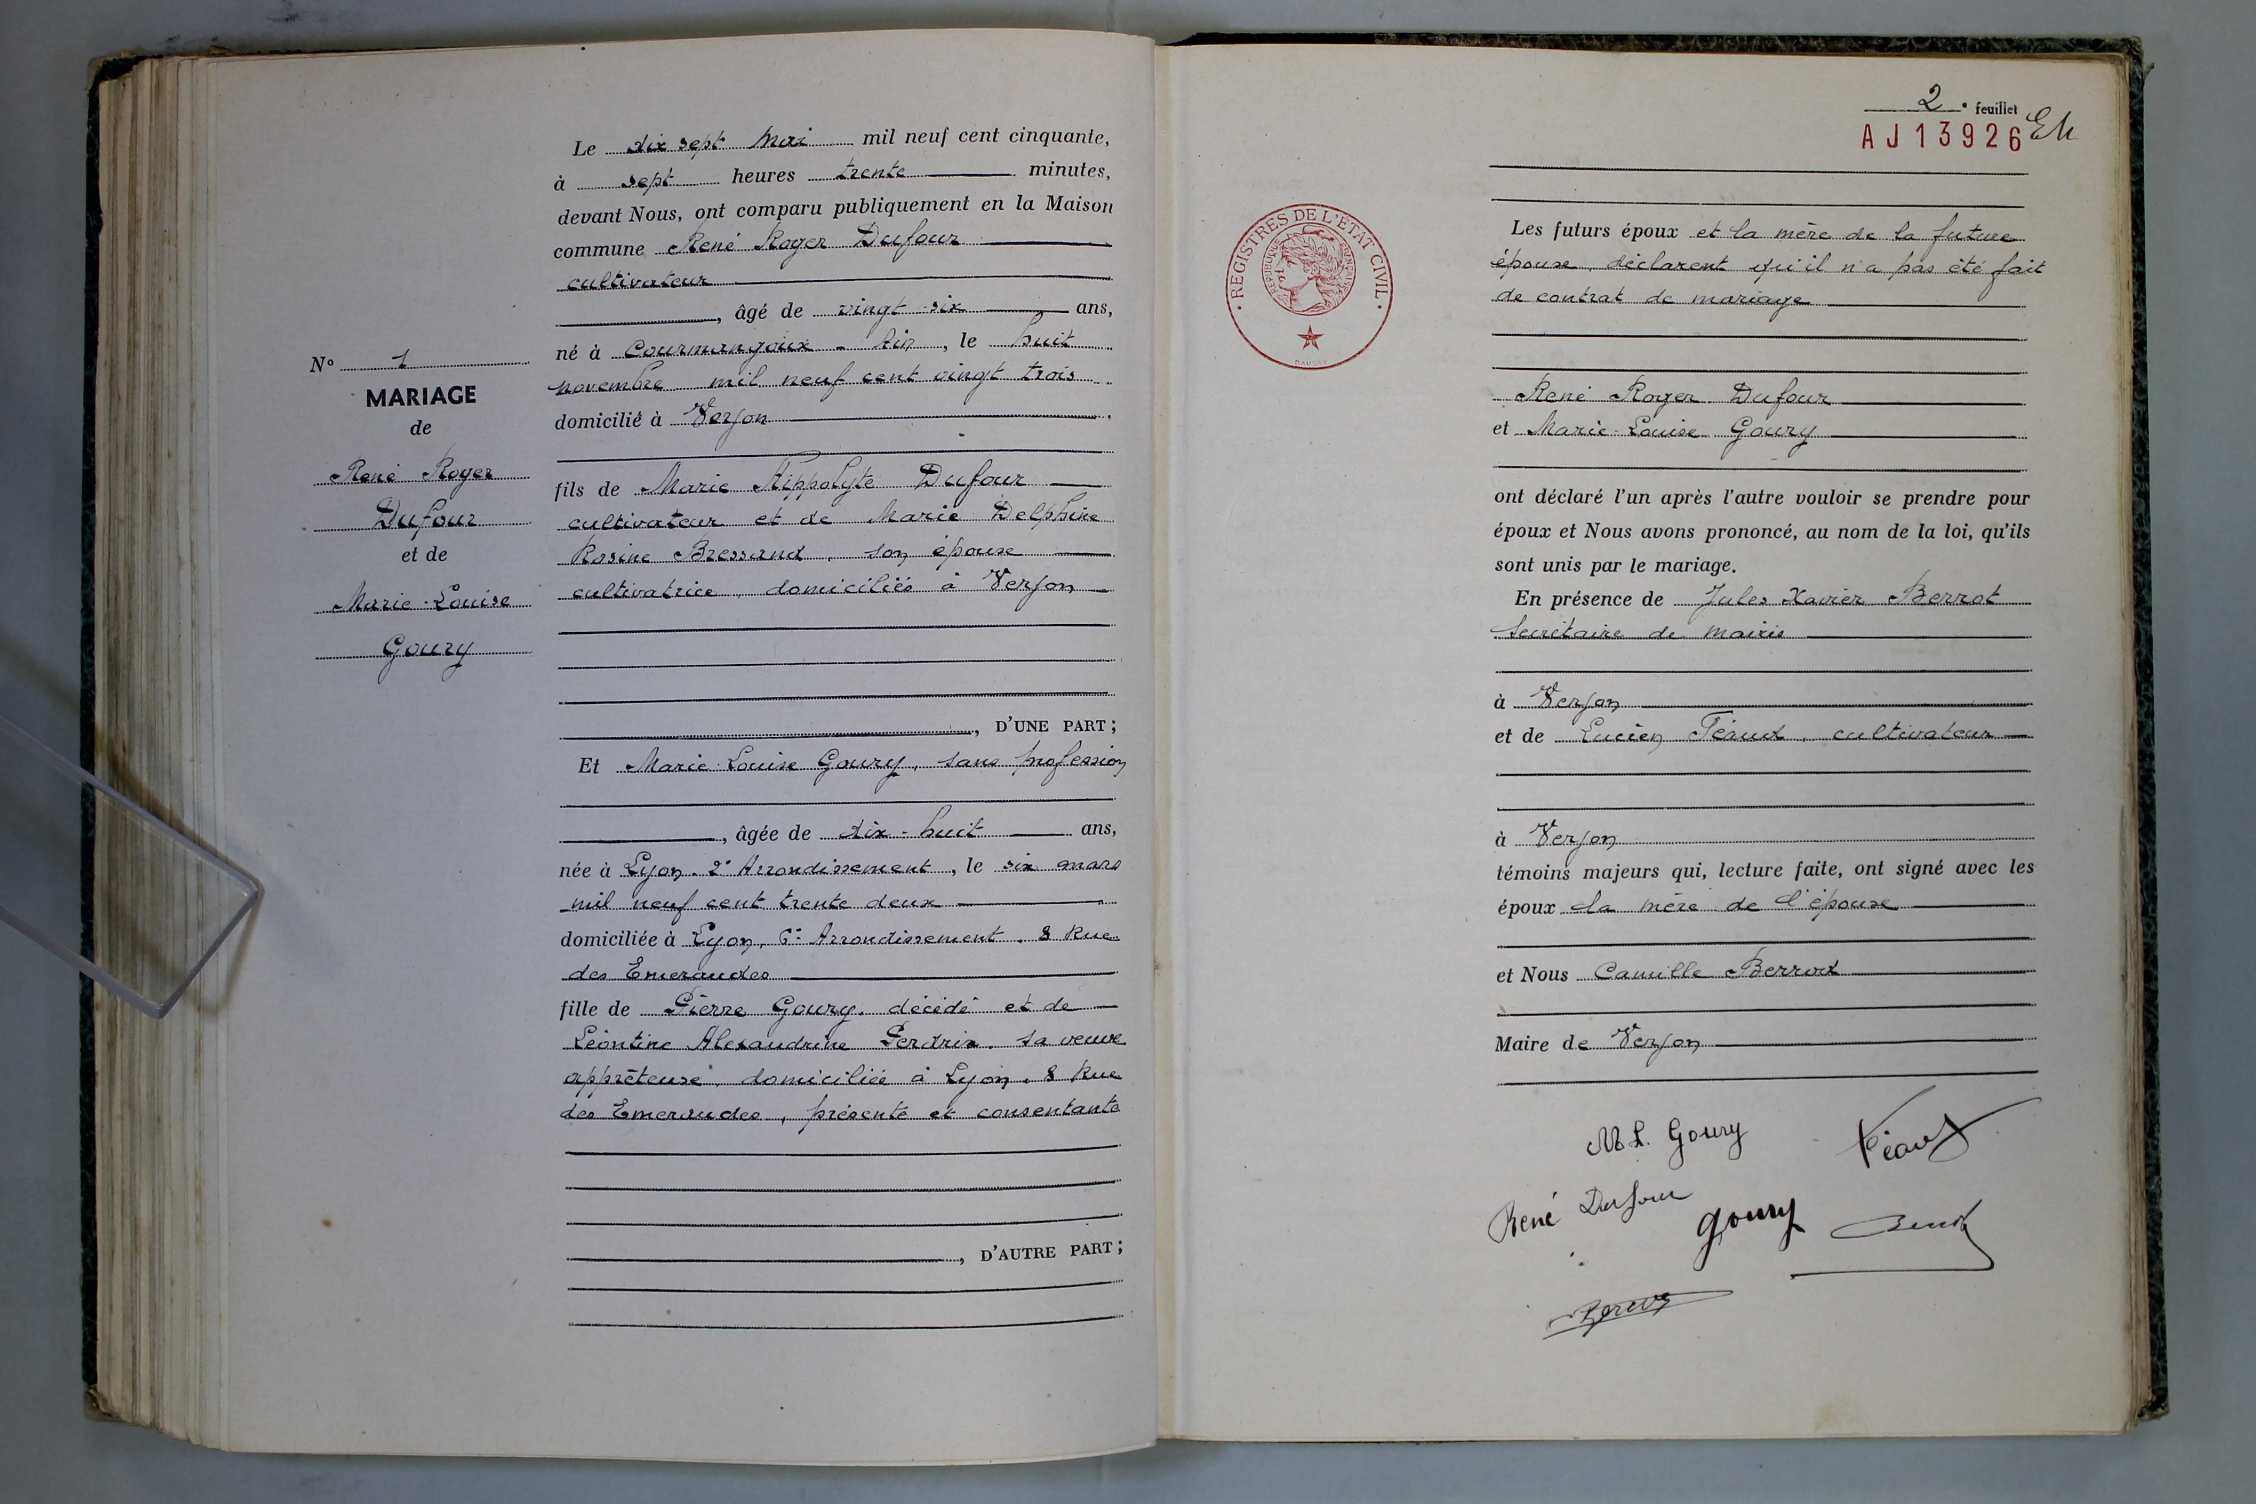 N° 1
MARIAGE
de
René Roger
Dufour
et de
Marie-Louise
Goury
Le dix sept Mai mil neuf cent cinquante,
à sept heures trente minutes,
devant Nous, ont comparu publiquement en la Maison
commune René Roger Dufour
cultivateur
, âgé de vingt-six ans,
né à Courmangoux - Ain, le huit
novembre mil neuf cent vingt trois
domicilié à Verjon
fils de Marie Hippolyte Dufour
cultivateur et de Marie Delphine
Rosine Bressand, son épouse
cultivatrice, domiciliés à Verjon
, D'UNE PART ;
Et Marie-Louise Goury, sans profession
, âgée de dix-huit ans,
née à Lyon. 2e Arrondissement, le six mars
mil neuf cent trente deux
domiciliée à Lyon, 6e Arrondissement. 8 Rue
des Emeraudes
fille de Pierre Goury, décédé et de
Léontine Alexandrine Perdrix, sa veuve
apprêteuse, domiciliée à Lyon. 8 Rue
des Emeraudes, présente et consentante
, D'AUTRE PART ;
2e feuillet
AJ13926
REGISTRES DE L'ÉTAT CIVIL
RÉPUBLIQUE FRANÇAISE
Les futurs époux et la mère de la future
épouse, déclarent qu'il n'a pas été fait
de contrat de mariage
René Roger Dufour
et Marie-Louise Goury
ont déclaré l'un après l'autre vouloir se prendre pour
époux et Nous avons prononcé, au nom de la loi, qu'ils
sont unis par le mariage.
En présence de Jules Xavier Berrot
Secrétaire de mairie
à Verjon
et de Lucien Féaux, cultivateur
à Verjon
témoins majeurs qui, lecture faite, ont signé avec les
époux la mère de l'épouse
et Nous Camille Berrod
Maire de Verjon
M L. Goury
Féaux
René Dufour
Goury